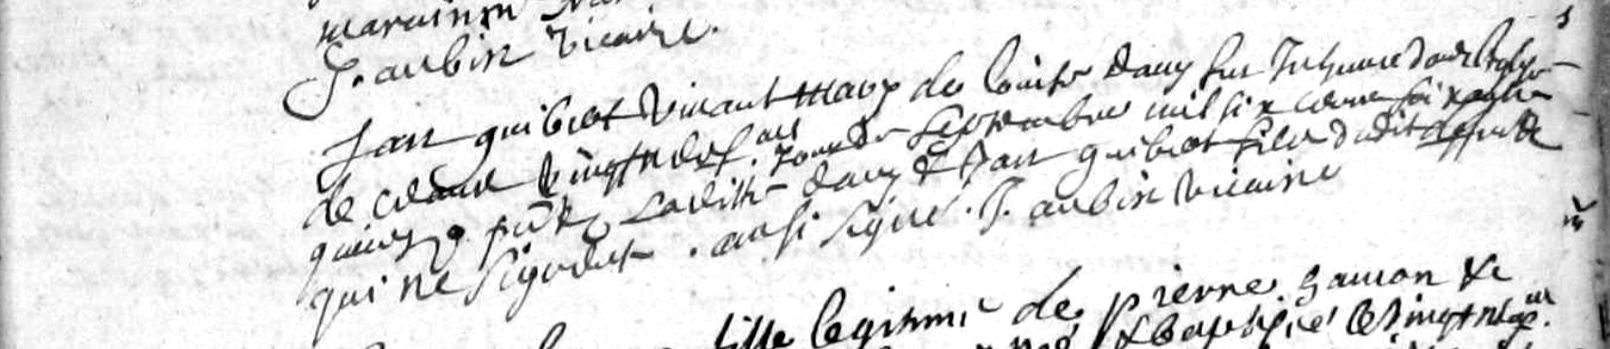 maraine
J. aubin vicaire.
Jan guibert vivant mary de louise dauy fut Inhumé dans leglise
de ceans le vingt neuf.me jour de septembre mil six cents soixante
quinze pnts ladite dauy & Jan guibert fils dudit deffunct
qui ne signent. ainsi signé. J. aubin vicaire
fille legitime de pierre hamon &
né & baptisé le vingt